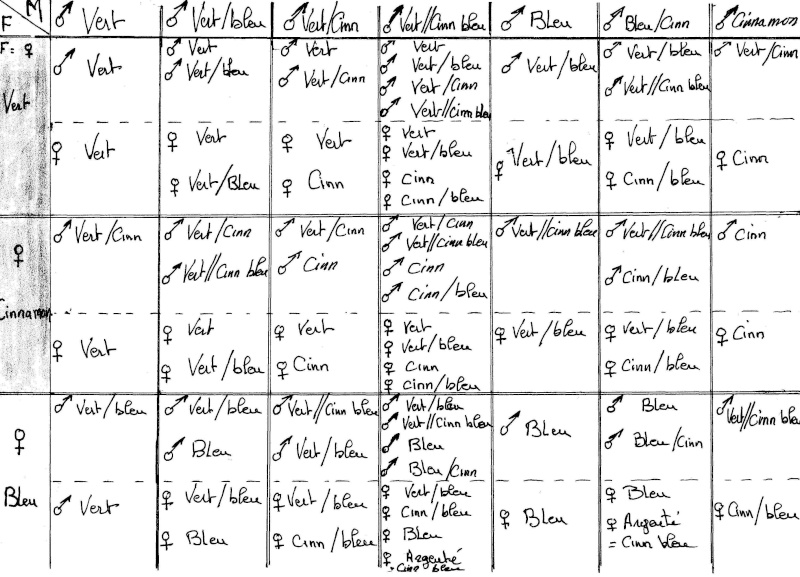 F M
♂ Vert
♂ Vert/bleu
♂ Vert/Cinn
♂ Vert//Cinn bleu
♂ Bleu
♂ Bleu/Cinn
♂ Cinnamon
F= ♀
Vert
♂ Vert
♂ Vert
♂ Vert/bleu
♂ Vert
♂ Vert/Cinn
♂ Vert
♂ Vert/bleu
♂ Vert/Cinn
♂ Vert//cinn bleu
♂ Vert/bleu
♂ Vert/bleu
♂ Vert//Cinn bleu
♂ Vert/Cinn
♀ Vert
♀ Vert
♀ Vert/Bleu
♀ Vert
♀ Cinn
♀ Vert
♀ Vert/bleu
♀ Cinn
♀ Cinn/bleu
♀ Vert/bleu
♀ Vert/bleu
♀ Cinn/bleu
♀ Cinn
♀
Cinnamon
♂ Vert/Cinn
♂ Vert/Cinn
♂ Vert//Cinn bleu
♂ Vert/Cinn
♂ Cinn
♂ Vert/Cinn
♂ Vert//Cinn bleu
♂ Cinn
♂ Cinn/bleu
♂ Vert//cinn bleu
♂ Vert//Cinn bleu
♂ Cinn/bleu
♂ Cinn
♀ Vert
♀ Vert
♀ Vert/bleu
♀ Vert
♀ Cinn
♀ Vert
♀ Vert/bleu
♀ Cinn
♀ cinn/bleu
♀ Vert/bleu
♀ Vert/bleu
♀ Cinn/bleu
♀ Cinn
♀
Bleu
♂ Vert/bleu
♂ Vert/bleu
♂ Bleu
♂ Vert//Cinn bleu
♂ Vert/bleu
♂ Vert/bleu
♂ Vert//Cinn bleu
♂ Bleu
♂ Bleu/Cinn
♂ Bleu
♂ Bleu
♂ Bleu/Cinn
♂ Vert//Cinn bleu
♂ Vert
♀ Vert/bleu
♀ Bleu
♀ Vert/bleu
♀ Cinn/bleu
♀ Vert/bleu
♀ Cinn/bleu
♀ Bleu
♀ Argenté
= Cinn bleu
♀ Bleu
♀ Bleu
♀ Argenté
= Cinn bleu
♀ Cinn/bleu